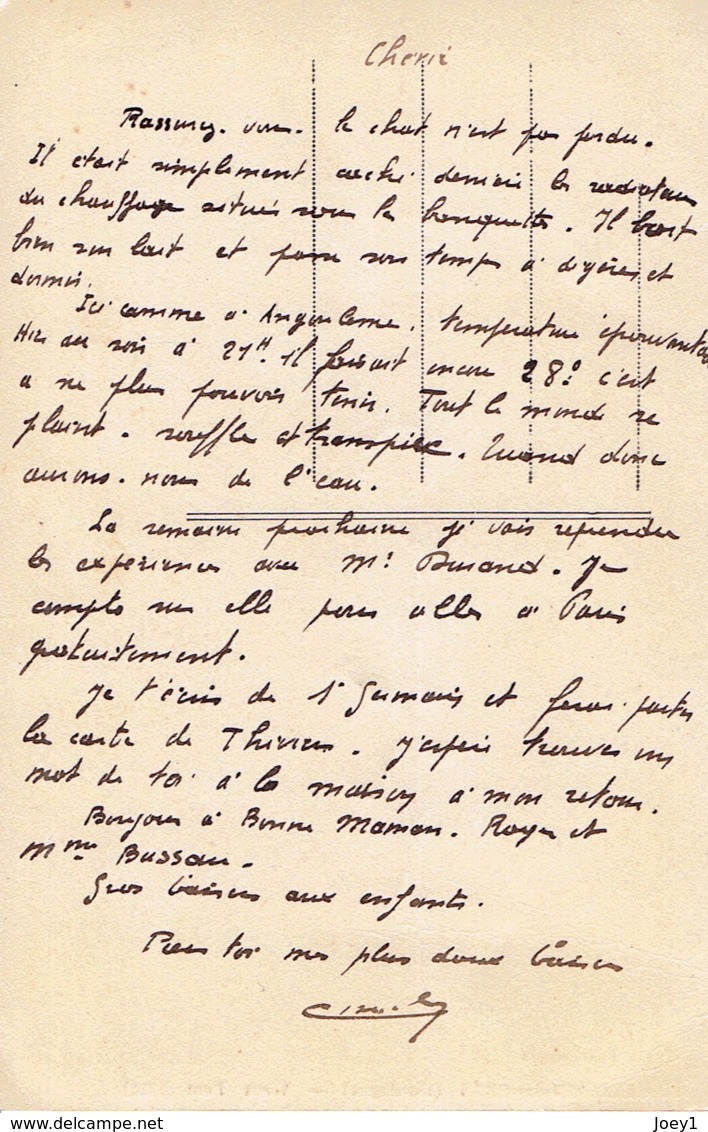 Cherie
Rassurez-vous. le chat n'est pas perdu.
Il etait simplement caché derriere les radiateurs
du chauffage situés sous les banquettes. Il boit
bien son lait et passe son temps à digérer et
dormir.
Ici comme à Angouleme. température épouvantable
Hier au soir à 21H. il faisait encore 28° c'est
a ne plus pouvoir tenir. Tout le monde se
plaint. souffle et transpire. Quand donc
aurons-nous de l'eau.
La semaine prochaine je vais reprendre
les expériences avec Mr Durand. Je
compte sur elle pour aller à Paris
gratuitement.
Je t'écris de St Germain et ferai partir
la carte de Thiviers. J'espère trouver un
mot de toi à la maison à mon retour.
Bonjour à Bonne Maman. Roger et
Mme Bussau.
Gros baisers aux enfants.
Pour toi mes plus doux baisers
Joey1